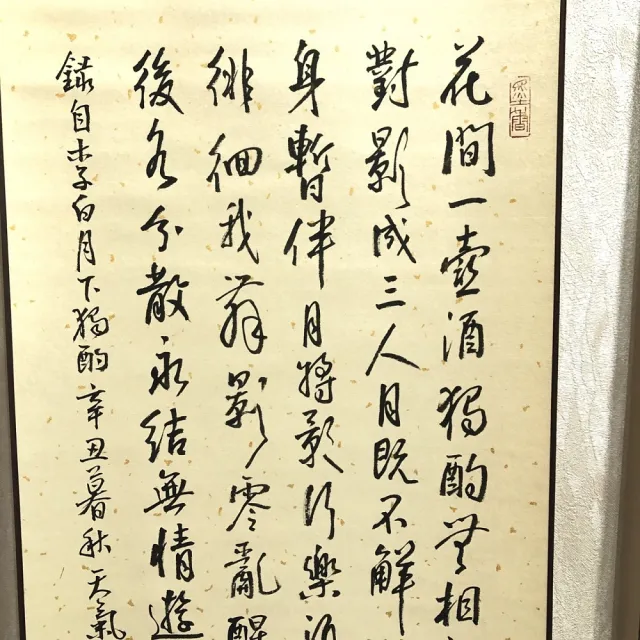 花間一壺酒獨酌無相
對影成三人月既不解
身暫伴月將影行樂須
徘徊我舞影零亂醒
後各分散永結無情遊
錄自李白月下獨酌辛丑暮秋天氣